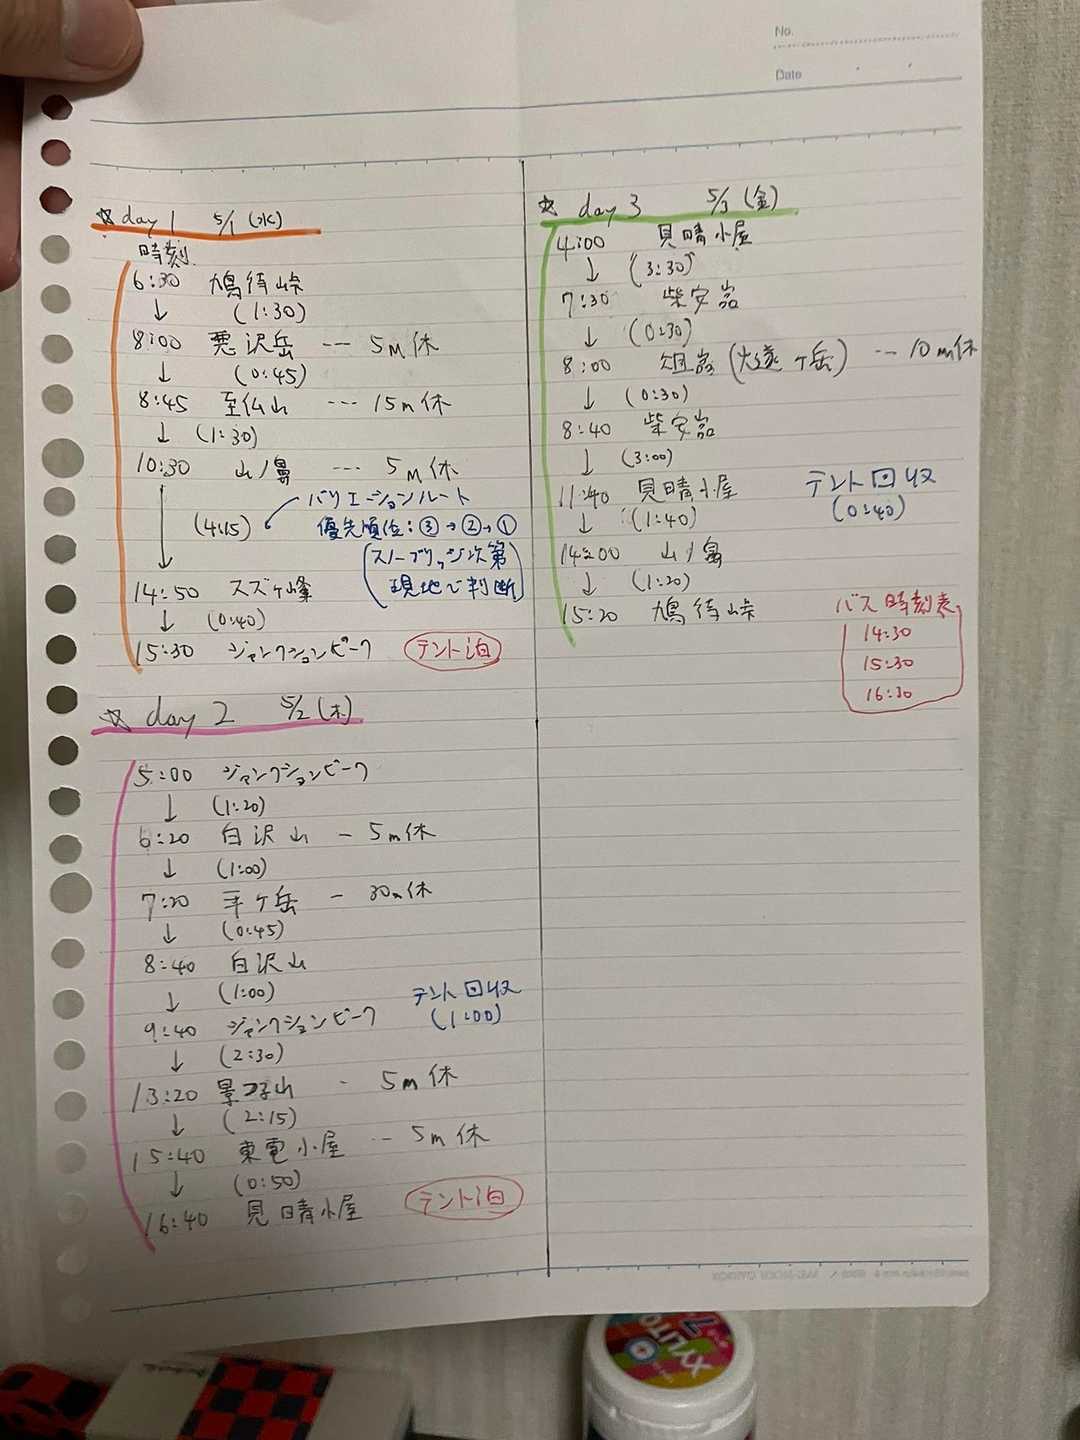 No.
Date
☆ day 1 5/1 (水)
時刻
6:30 鳩待峠
↓ (1:30)
8:00 悪沢岳 --- 5m休
↓ (0:45)
8:45 至仏山 --- 15m休
↓ (1:30)
10:30 山ノ鼻 --- 5m休
バリエーションルート
(4:15) 優先順位:③→②→①
↓ (スノーブリッジ次第
現地で判断)
14:50 スズケ峰
↓ (0:40)
15:30 ジャンクションピーク テント泊
☆ day 2 5/2 (木)
5:00 ジャンクションピーク
↓ (1:20)
6:20 白沢山 - 5m休
↓ (1:00)
7:20 平ヶ岳 - 30m休
↓ (0:45)
8:40 白沢山
↓ (1:00) テント回収
9:40 ジャンクションピーク (1:00)
↓ (2:30)
13:20 景鶴山 - 5m休
↓ (2:15)
15:40 東電小屋 -- 5m休
↓ (0:50)
16:40 見晴小屋 テント泊
☆ day 3 5/3 (金)
4:00 見晴小屋
↓ (3:30)
7:30 柴安嵓
↓ (0:30)
8:00 俎嵓 (燧ヶ岳) --- 10m休
↓ (0:30)
8:40 柴安嵓
↓ (3:00)
11:40 見晴小屋 テント回収
↓ (1:40) (0:40)
14:00 山ノ鼻
↓ (1:20)
15:20 鳩待峠 バス時刻表
14:30
15:30
16:30
XYLITO